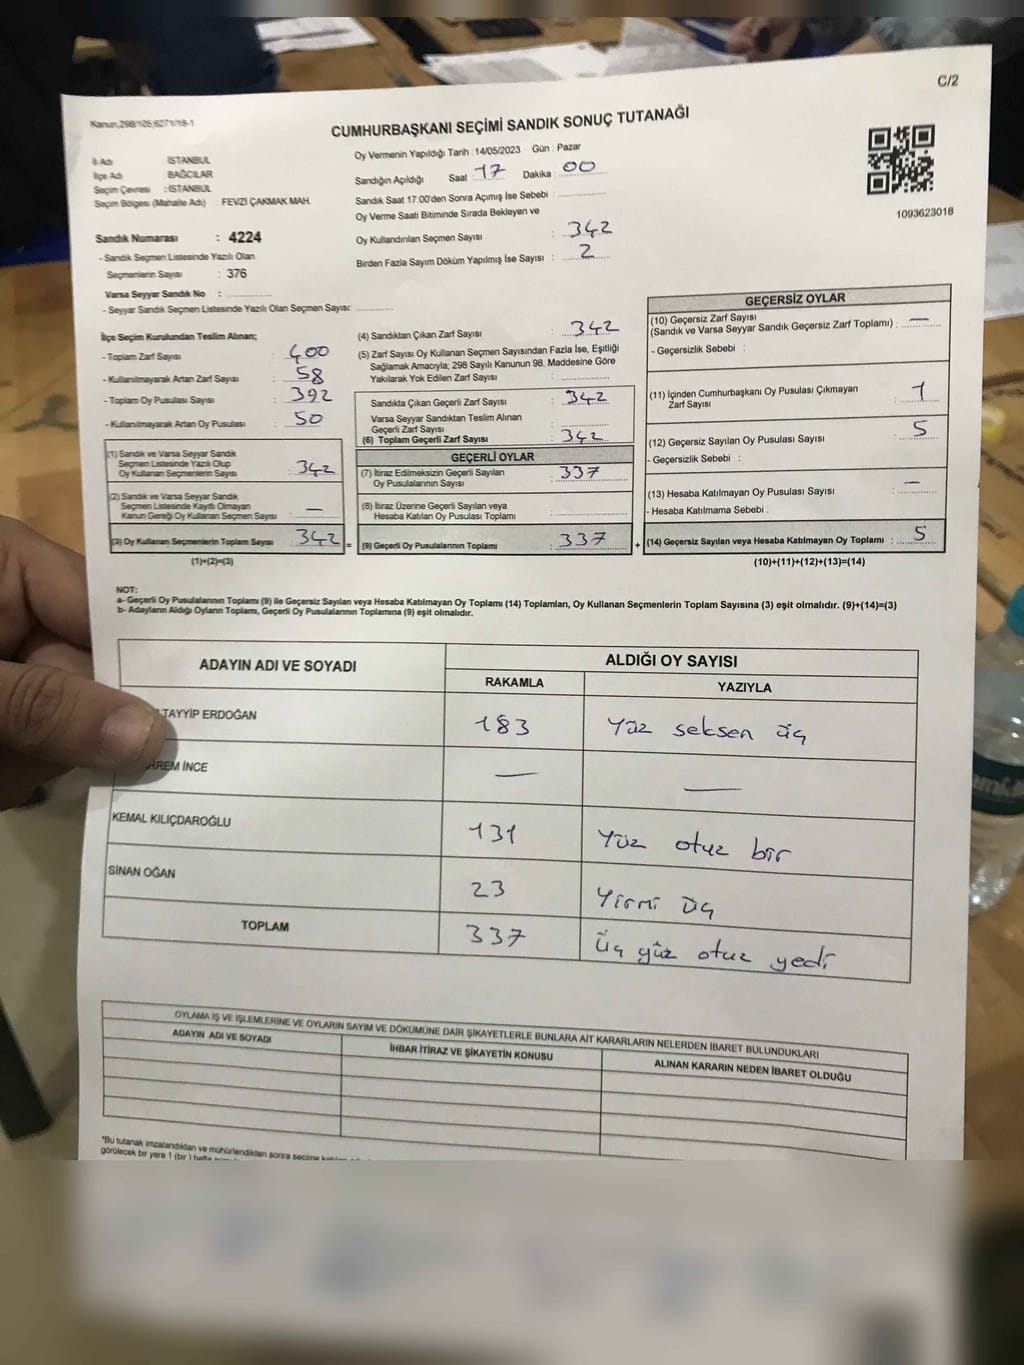 C/2
Kanun,298/105;6271/18-1
CUMHURBAŞKANI SEÇİMİ SANDIK SONUÇ TUTANAĞI
İl Adı : İSTANBUL
İlçe Adı : BAĞCILAR
Seçim Çevresi : İSTANBUL
Seçim Bölgesi (Mahalle Adı) FEVZİ ÇAKMAK MAH.
Sandık Numarası : 4224
- Sandık Seçmen Listesinde Yazılı Olan
Seçmenlerin Sayısı : 376
Varsa Seyyar Sandık No :
- Seyyar Sandık Seçmen Listesinde Yazılı Olan Seçmen Sayısı:
Oy Vermenin Yapıldığı Tarih : 14/05/2023 Gün : Pazar
Sandığın Açıldığı Saat : 17 Dakika : 00
Sandık Saat 17:00'den Sonra Açımış İse Sebebi :
Oy Verme Saati Bitiminde Sırada Bekleyen ve
Oy Kullandırılan Seçmen Sayısı : 342
Birden Fazla Sayım Döküm Yapılmış İse Sayısı : 2
1093623018
İlçe Seçim Kurulundan Teslim Alınan;
- Toplam Zarf Sayısı : 400
- Kullanılmayarak Artan Zarf Sayısı : 58
- Toplam Oy Pusulası Sayısı : 392
- Kullanılmayarak Artan Oy Pusulası : 50
(1) Sandık ve Varsa Seyyar Sandık
Seçmen Listesinde Yazılı Olup
Oy Kullanan Seçmenlerin Sayısı : 342
(2) Sandık ve Varsa Seyyar Sandık
Seçmen Listesinde Kayıtlı Olmayan
Kanun Gereği Oy Kullanan Seçmen Sayısı : —
(3) Oy Kullanan Seçmenlerin Toplam Sayısı 342 =
(1)+(2)=(3)
(4) Sandıktan Çıkan Zarf Sayısı : 342
(5) Zarf Sayısı Oy Kullanan Seçmen Sayısından Fazla İse, Eşitliği
Sağlamak Amacıyla; 298 Sayılı Kanunun 98. Maddesine Göre
Yakılarak Yok Edilen Zarf Sayısı :
Sandıkta Çıkan Geçerli Zarf Sayısı : 342
Varsa Seyyar Sandıktan Teslim Alınan
Geçerli Zarf Sayısı :
(6) Toplam Geçerli Zarf Sayısı : 342
GEÇERLİ OYLAR
(7) İtiraz Edilmeksizin Geçerli Sayılan
Oy Pusulalarının Sayısı : 337
(8) İtiraz Üzerine Geçerli Sayılan veya
Hesaba Katılan Oy Pusulası Toplamı :
(9) Geçerli Oy Pusulalarının Toplamı : 337 +
GEÇERSİZ OYLAR
(10) Geçersiz Zarf Sayısı
(Sandık ve Varsa Seyyar Sandık Geçersiz Zarf Toplamı) : —
- Geçersizlik Sebebi :
(11) İçinden Cumhurbaşkanı Oy Pusulası Çıkmayan
Zarf Sayısı : 1
(12) Geçersiz Sayılan Oy Pusulası Sayısı : 5
- Geçersizlik Sebebi :
(13) Hesaba Katılmayan Oy Pusulası Sayısı : —
- Hesaba Katılmama Sebebi :
(14) Geçersiz Sayılan veya Hesaba Katılmayan Oy Toplamı : 5
(10)+(11)+(12)+(13)=(14)
NOT:
a- Geçerli Oy Pusulalarının Toplamı (9) ile Geçersiz Sayılan veya Hesaba Katılmayan Oy Toplamı (14) Toplamları, Oy Kullanan Seçmenlerin Toplam Sayısına (3) eşit olmalıdır. (9)+(14)=(3)
b- Adayların Aldığı Oyların Toplamı, Geçerli Oy Pusulalarının Toplamına (9) eşit olmalıdır.
ADAYIN ADI VE SOYADI ALDIĞI OY SAYISI
RAKAMLA YAZIYLA
TAYYİP ERDOĞAN 183 Yüz seksen üç
RREM İNCE — —
KEMAL KILIÇDAROĞLU 131 Yüz otuz bir
SİNAN OĞAN 23 Yirmi üç
TOPLAM 337 Üç yüz otuz yedi
OYLAMA İŞ VE İŞLEMLERİNE VE OYLARIN SAYIM VE DÖKÜMÜNE DAİR ŞİKAYETLERLE BUNLARA AİT KARARLARIN NELERDEN İBARET BULUNDUKLARI
ADAYIN ADI VE SOYADI İHBAR İTİRAZ VE ŞİKAYETİN KONUSU ALINAN KARARIN NEDEN İBARET OLDUĞU
*Bu tutanak imzalandıktan ve mühürlendikten sonra seçime
görülecek bir yere 1 (bir) hafta